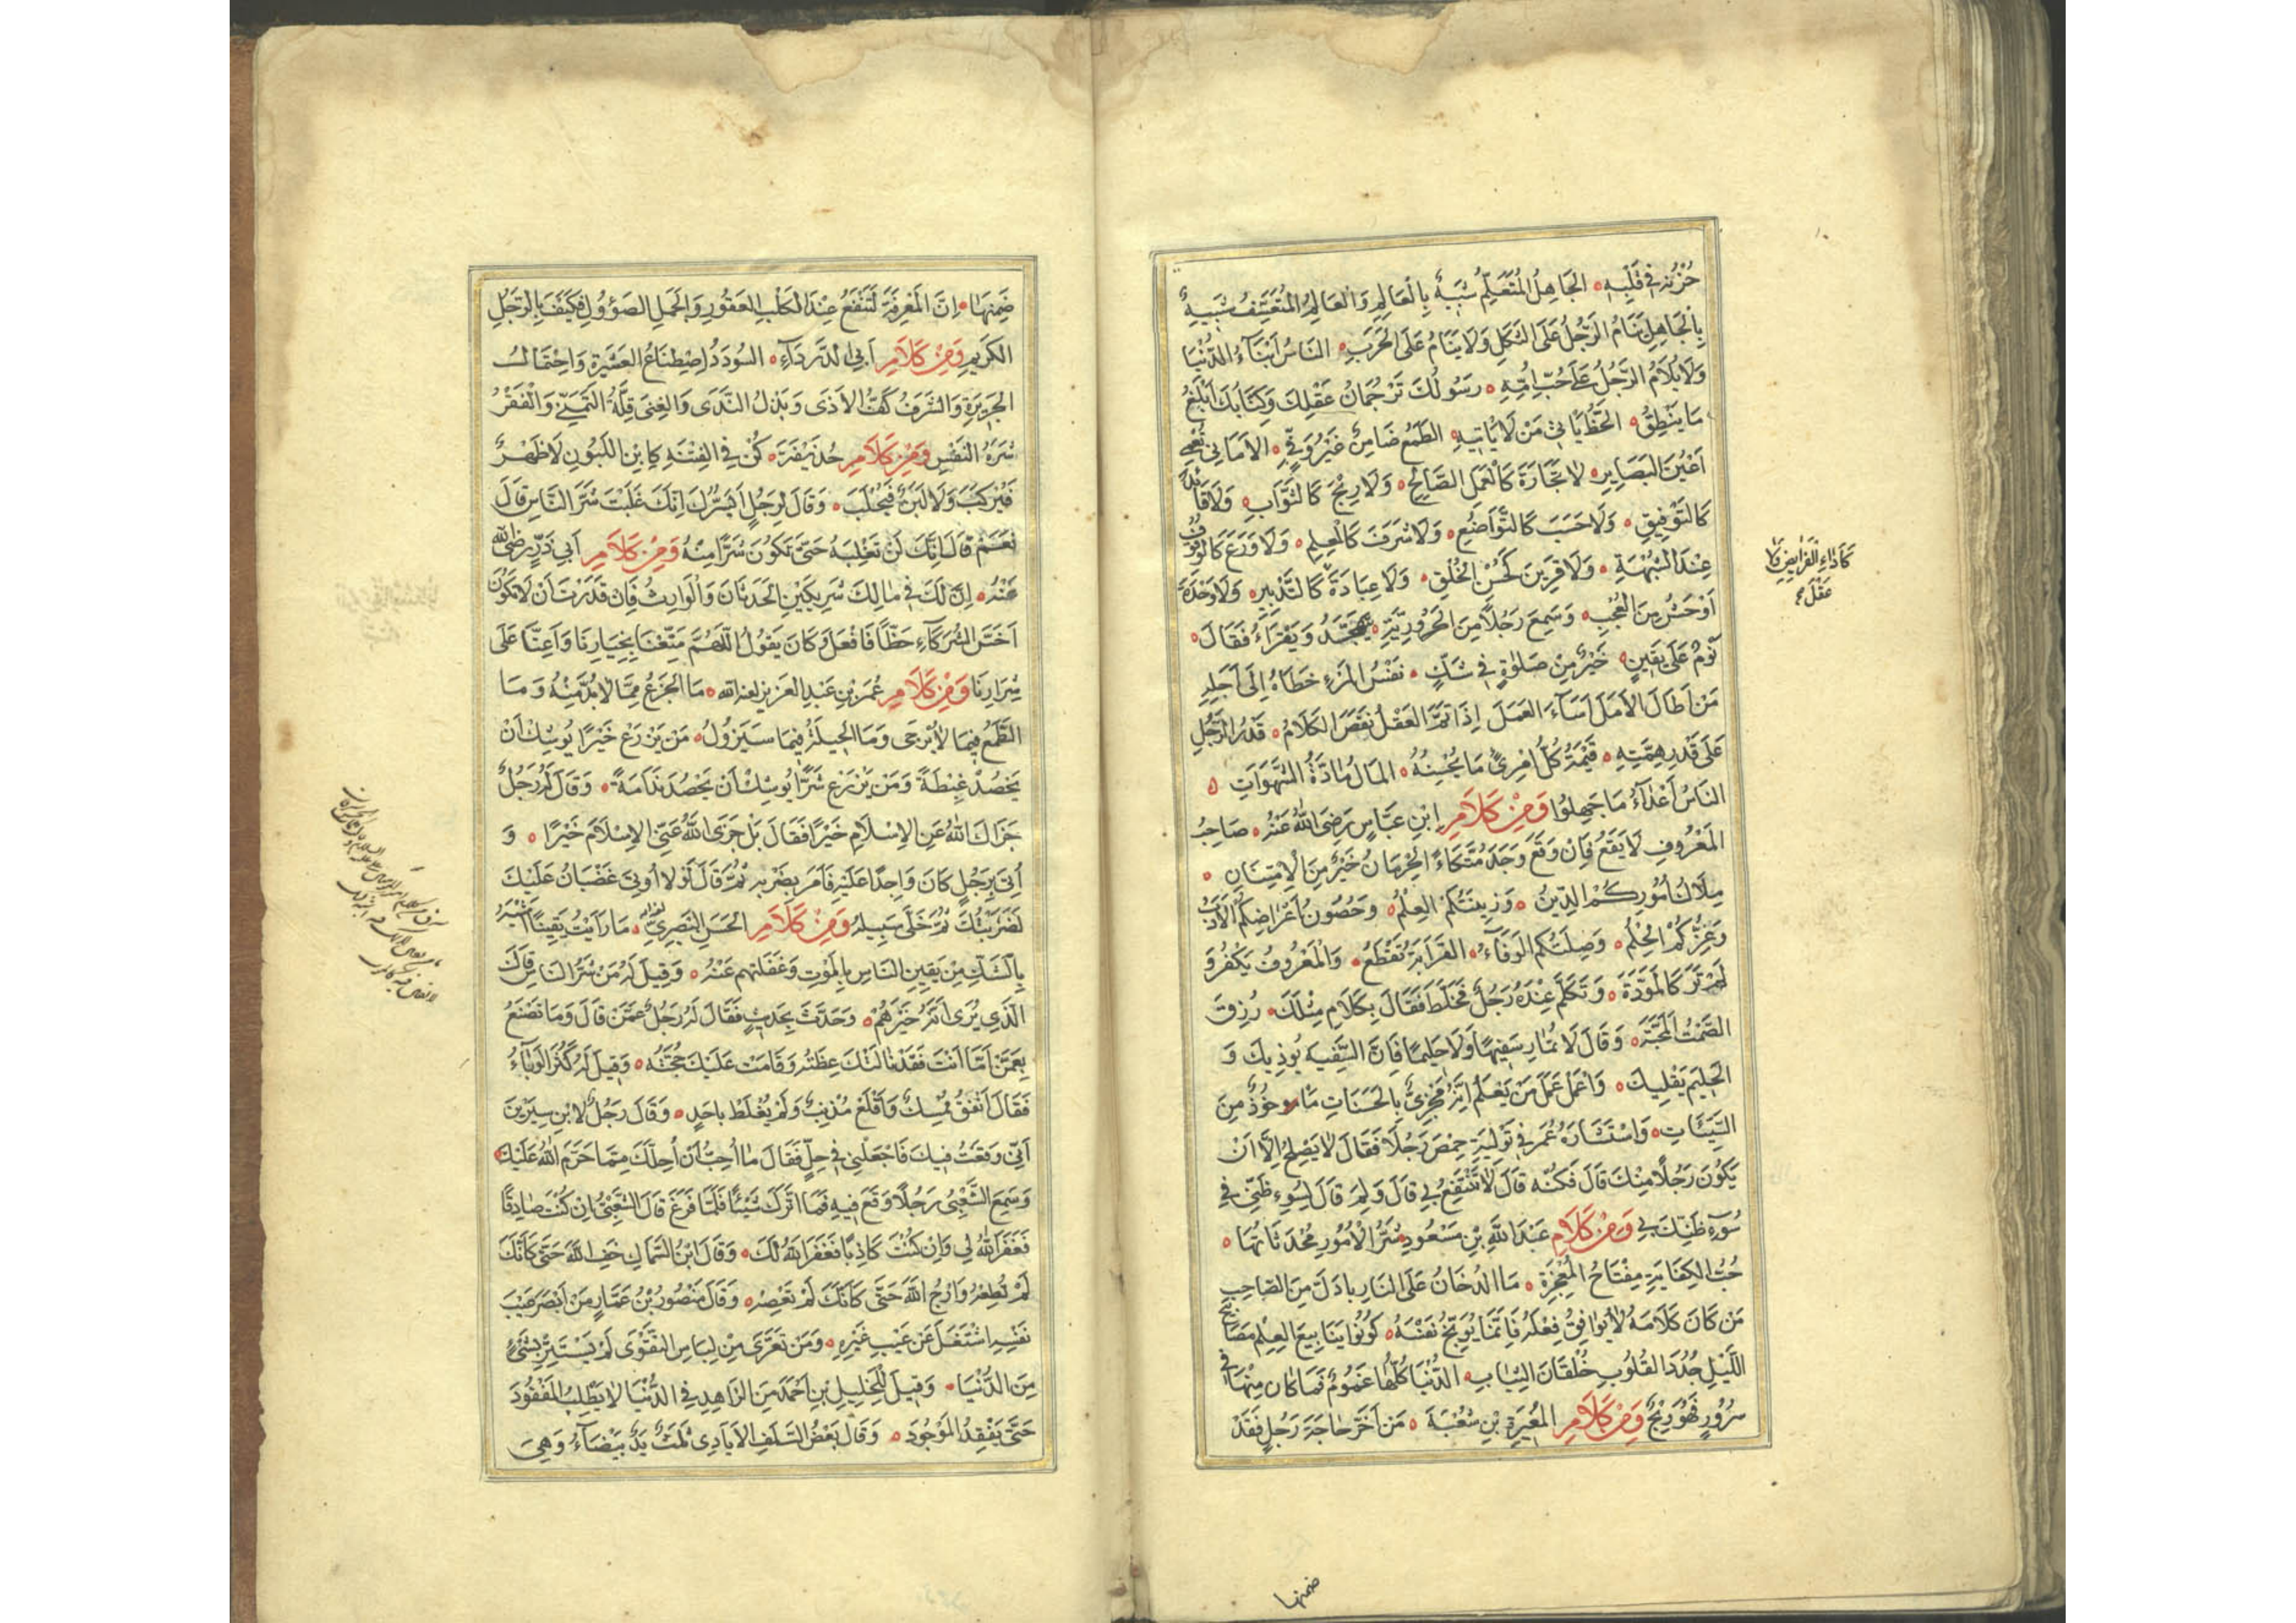 حُزْنُهُ فِي قَلْبِهِ الجَاهِلُ المُتَعَلِّمُ شَبِيهٌ بِالْعَالِمِ وَالعَالِمُ المُتَعَسِّفُ شَبِيهٌ
بِالْجَاهِلِ يَنَامُ الرَّجُلُ عَلَى الثَّكَلِ وَلَا يَنَامُ عَلَى الحَرَبِ النَّاسُ أَبْنَاءُ الدُّنْيَا
وَلَا يُلَامُ الرَّجُلُ عَلَى حُبِّ أُمِّهِ رَسُولُكَ تَرْجُمَانُ عَقْلِكَ وَكِتَابُكَ أَبْلَغُ
مَا يَنْطِقُ الحَظُّ يَأْتِي مَنْ لَا يَأْتِيهِ الطَّمَعُ ضَامِنٌ غَيْرُ وَفِيٍّ الأَمَانِي تُعْمِي
أَعْيُنَ البَصَايِرِ لَا تِجَارَةَ كَالْعَمَلِ الصَّالِحِ وَلَا رِبْحَ كَالثَّوَابِ وَلَا قَائِدَ
كَالتَّوْفِيقِ وَلَا حَسَبَ كَالتَّوَاضُعِ وَلَا شَرَفَ كَالْعِلْمِ وَلَا وَرَعَ كَالوُقُوفِ
عِنْدَ الشُّبْهَةِ وَلَا قَرِينَ كَحُسْنِ الخُلُقِ وَلَا عِبَادَةَ كَالتَّدْبِيرِ وَلَا وَحْدَةَ
أَوْحَشُ مِنَ العُجْبِ وَسَمِعَ رَجُلًا مِنَ الحَرُورِيَّةِ يَتَهَجَّدُ وَيَقْرَاءُ فَقَالَ
نَوْمٌ عَلَى يَقِينٍ خَيْرٌ مِنْ صَلٰوةٍ فِي شَكٍّ نَفَسُ المَرْءِ خُطَاهُ إِلَى أَجَلِهِ
مَنْ أَطَالَ الأَمَلَ أَسَاءَ العَمَلَ إِذَا تَمَّ العَقْلُ نَقَصَ الكَلَامُ قَدْرُ الرَّجُلِ
عَلَى قَدْرِ هِمَّتِهِ قِيْمَةُ كُلِّ امْرِئٍ مَا يُحْسِنُهُ المَالُ مَادَّةُ الشَّهَوَاتِ
النَّاسُ أَعْدَاءُ مَا جَهِلُوا وَمِنْ كَلَامِ ابْنِ عَبَّاسٍ رَضِيَ اللهُ عَنْهُ صَاحِبُ
المَعْرُوفِ لَا يَقَعُ فَإِنْ وَقَعَ وَجَدَ مُتَّكَاءً الحِرْمَانُ خَيْرٌ مِنَ الاِمْتِنَانِ
مِلَاكُ أُمُورِكُمُ الدِّينُ وَزِينَتُكُمُ العِلْمُ وَحُصُونُ أَعْرَاضِكُمُ الأَدَبُ
وَعِزُّكُمُ الحِلْمُ وَصِلَتُكُمُ الوَفَاءُ القَرَابَةُ تُقْطَعُ وَالمَعْرُوفُ يُكْفَرُ وَ
لَمْ تَرَ كَالمَوَدَّةِ وَتَكَلَّمَ عِنْدَهُ رَجُلٌ فَخَلَّطَ فَقَالَ بِكَلَامِ مِثْلِكَ رُزِقَ
الصَّمْتُ المَحَبَّةَ وَقَالَ لَا تُمَارِ سَفِيهًا وَلَا حَلِيمًا فَإِنَّ السَّفِيهَ يُوذِيكَ وَ
الحَلِيمَ يَقْلِيكَ وَاعْمَلْ عَمَلَ مَنْ يَعْلَمُ أَنَّهُ مَجْزِيٌّ بِالحَسَنَاتِ مَاْخُوْذٌ مِنَ
السَّيِّئَاتِ وَاسْتَشَارَهُ عُمَرُ فِي تَوْلِيَةِ حِمْصَ رَجُلًا فَقَالَ لَا يَصْلُحُ إِلَّا أَنْ
يَكُونَ رَجُلًا مِنْكَ قَالَ فَكُنْهُ قَالَ لَا تَنْتَفِعُ بِي قَالَ وَلِمَ قَالَ لِسُوءِ ظَنِّي فِي
سُوءِ ظَنِّكَ بِي وَمِنْ كَلَامِ عَبْدِ اللهِ بْنِ مَسْعُودٍ شَرُّ الأُمُورِ مُحْدَثَاتُهَا
حُبُّ الكِفَايَةِ مِفْتَاحُ المُعْجِزَةِ مَا الدُّخَانُ عَلَى النَّارِ بِأَدَلَّ مِنَ الصَّاحِبِ
مَنْ كَانَ كَلَامُهُ لَا يُوَافِقُ فِعْلَهُ فَإِنَّمَا يُوَبِّخُ نَفْسَهُ كُونُوا يَنَابِيعَ العِلْمِ مَصَابِيحَ
اللَّيْلِ جُدُدَ القُلُوبِ خُلْقَانَ الثِّيَابِ الدُّنْيَا كُلُّهَا غُمُومٌ فَمَا كَانَ مِنْهَا فِي
سُرُورٍ فَهُوَ رِبْحٌ وَمِنْ كَلَامِ المُغِيرَةِ بْنِ شُعْبَةَ مَنْ أَخَّرَ حَاجَةَ رَجُلٍ فَقَدْ
كَأَدَاءِ الفَرَايِضِ وَلَا
عَقْلَ صح
ضمنها
ضَمِنَهَا إِنَّ المَعْرِفَةَ لَتَنْفَعُ عِنْدَ الكَلْبِ العَقُورِ وَالجَمَلِ الصَّؤُولِ فَكَيْفَ بِالرَّجُلِ
الكَرِيمِ وَمِنْ كَلَامِ أَبِي الدَّرْدَاءِ السُّودَدُ اصْطِنَاعُ العَشِيرَةِ وَاحْتِمَالُ
الجَرِيرَةِ وَالشَّرَفُ كَفُّ الأَذَى وَبَذْلُ النَّدَى وَالغِنَى قِلَّةُ التَّمَنِّي وَالفَقْرُ
شَرَهُ النَّفْسِ وَمِنْ كَلَامِ حُذَيْفَةَ كُنْ فِي الفِتْنَةِ كَابْنِ اللَّبُونِ لَا ظَهْرٌ
فَيُرْكَبَ وَلَا لَبَنٌ فَيُحْلَبَ وَقَالَ لِرَجُلٍ أَيَسُرُّكَ إِنَّكَ غَلَبْتَ شَرَّ النَّاسِ قَالَ
نَعَمْ قَالَ إِنَّكَ لَنْ تَغْلِبَهُ حَتَّى تَكُونَ شَرًّا مِنْهُ وَمِنْ كَلَامِ أَبِي ذَرٍّ رَضِيَ اللهُ
عَنْهُ إِنَّ لَكَ فِي مَالِكَ شَرِيكَيْنِ الحَدَثَانَ وَالوَارِثَ فَإِنْ قَدَرْتَ أَنْ لَا تَكُونَ
أَخَسَّ الشُّرَكَاءِ حَظًّا فَافْعَلْ وَكَانَ يَقُولُ اللَّهُمَّ مَتِّعْنَا بِخِيَارِنَا وَأَعِنَّا عَلَى
شِرَارِنَا وَمِنْ كَلَامِ عُمَرَ بْنِ عَبْدِ العَزِيزِ لعنه الله مَا الجَزَعُ مِمَّا لَا بُدَّ مِنْهُ وَمَا
الطَّمَعُ فِيمَا لَا يُرْجَى وَمَا الحِيلَةُ فِيمَا سَيَزُولُ مَنْ يَزْرَعْ خَيْرًا يُوشِكْ أَنْ
يَحْصُدَ غِبْطَةً وَمَنْ يَزْرَعْ شَرًّا يُوشِكْ أَنْ يَحْصُدَ نَدَامَةً وَقَالَ لَهُ رَجُلٌ
جَزَاكَ اللهُ عَنِ الإِسْلَامِ خَيْرًا فَقَالَ بَلْ جَزَى اللهُ عَنِّي الإِسْلَامَ خَيْرًا وَ
أُتِيَ بِرَجُلٍ كَانَ وَاجِدًا عَلَيْهِ فَأَمَرَ بِضَرْبِهِ ثُمَّ قَالَ لَوْلَا أَنِّي غَضْبَانُ عَلَيْكَ
لَضَرَبْتُكَ ثُمَّ خَلَّى سَبِيلَهُ وَمِنْ كَلَامِ الحَسَنِ البَصْرِيِّ مَا رَأَيْتُ يَقِينًا أَشْبَهَ
بِالشَّكِّ مِنْ يَقِينِ النَّاسِ بِالْمَوْتِ وَغَفْلَتِهِمْ عَنْهُ وَقِيلَ لَهُ مَنْ شَرُّ النَّاسِ قَالَ
الَّذِي يُرَى أَنَّهُ خَيْرُهُمْ وَحَدَّثَ بِحَدِيثٍ فَقَالَ لَهُ رَجُلٌ عَمَّنْ قَالَ وَمَا تَصْنَعُ
بِعَمَّنْ أَمَّا أَنْتَ فَقَدْ نَالَتْكَ عِظَتُهُ وَقَامَتْ عَلَيْكَ حُجَّتُهُ وَقِيلَ لَهُ كَثُرَ الوَبَاءُ
فَقَالَ أَنْفَقَ مُمْسِكٌ وَأَقْلَعَ مُذْنِبٌ وَلَمْ يُغْلَطْ بِأَحَدٍ وَقَالَ رَجُلٌ لِابْنِ سِيرِينَ
أَنِّي وَقَعْتُ فِيكَ فَاجْعَلْنِي فِي حِلٍّ فَقَالَ مَا أُحِبُّ أَنْ أُحِلَّكَ مِمَّا حَرَّمَ اللهُ عَلَيْكَ
وَسَمِعَ الشَّعْبِيُّ رَجُلًا وَقَعَ فِيهِ فَمَا تَرَكَ شَيْئًا فَلَمَّا فَرَغَ قَالَ الشَّعْبِيُّ إِنْ كُنْتَ صَادِقًا
فَغَفَرَ اللهُ لِي وَإِنْ كُنْتَ كَاذِبًا فَغَفَرَ اللهُ لَكَ وَقَالَ ابْنُ السَّمَاكِ خَفِ اللهَ حَتَّى كَأَنَّكَ
لَمْ تُطِعْهُ وَارْجُ اللهَ حَتَّى كَأَنَّكَ لَمْ تَعْصِهِ وَقَالَ مَنْصُورُ بْنُ عَمَّارٍ مَنْ أَبْصَرَ عَيْبَ
نَفْسِهِ اشْتَغَلَ عَنْ عَيْبِ غَيْرِهِ وَمَنْ تَعَرَّى مِنْ لِبَاسِ التَّقْوَى لَمْ يَسْتَتِرْ بِشَيْءٍ
مِنَ الدُّنْيَا وَقِيلَ لِلْخَلِيلِ بْنِ أَحْمَدَ مَنِ الزَّاهِدُ فِي الدُّنْيَا لَا يَطْلُبُ المَفْقُودَ
حَتَّى يَفْقِدَ المَوْجُودَ وَقَالَ بَعْضُ السَّلَفِ الأَيَادِي ثَلٰثٌ يَدٌ بَيْضَاءُ وَهِيَ